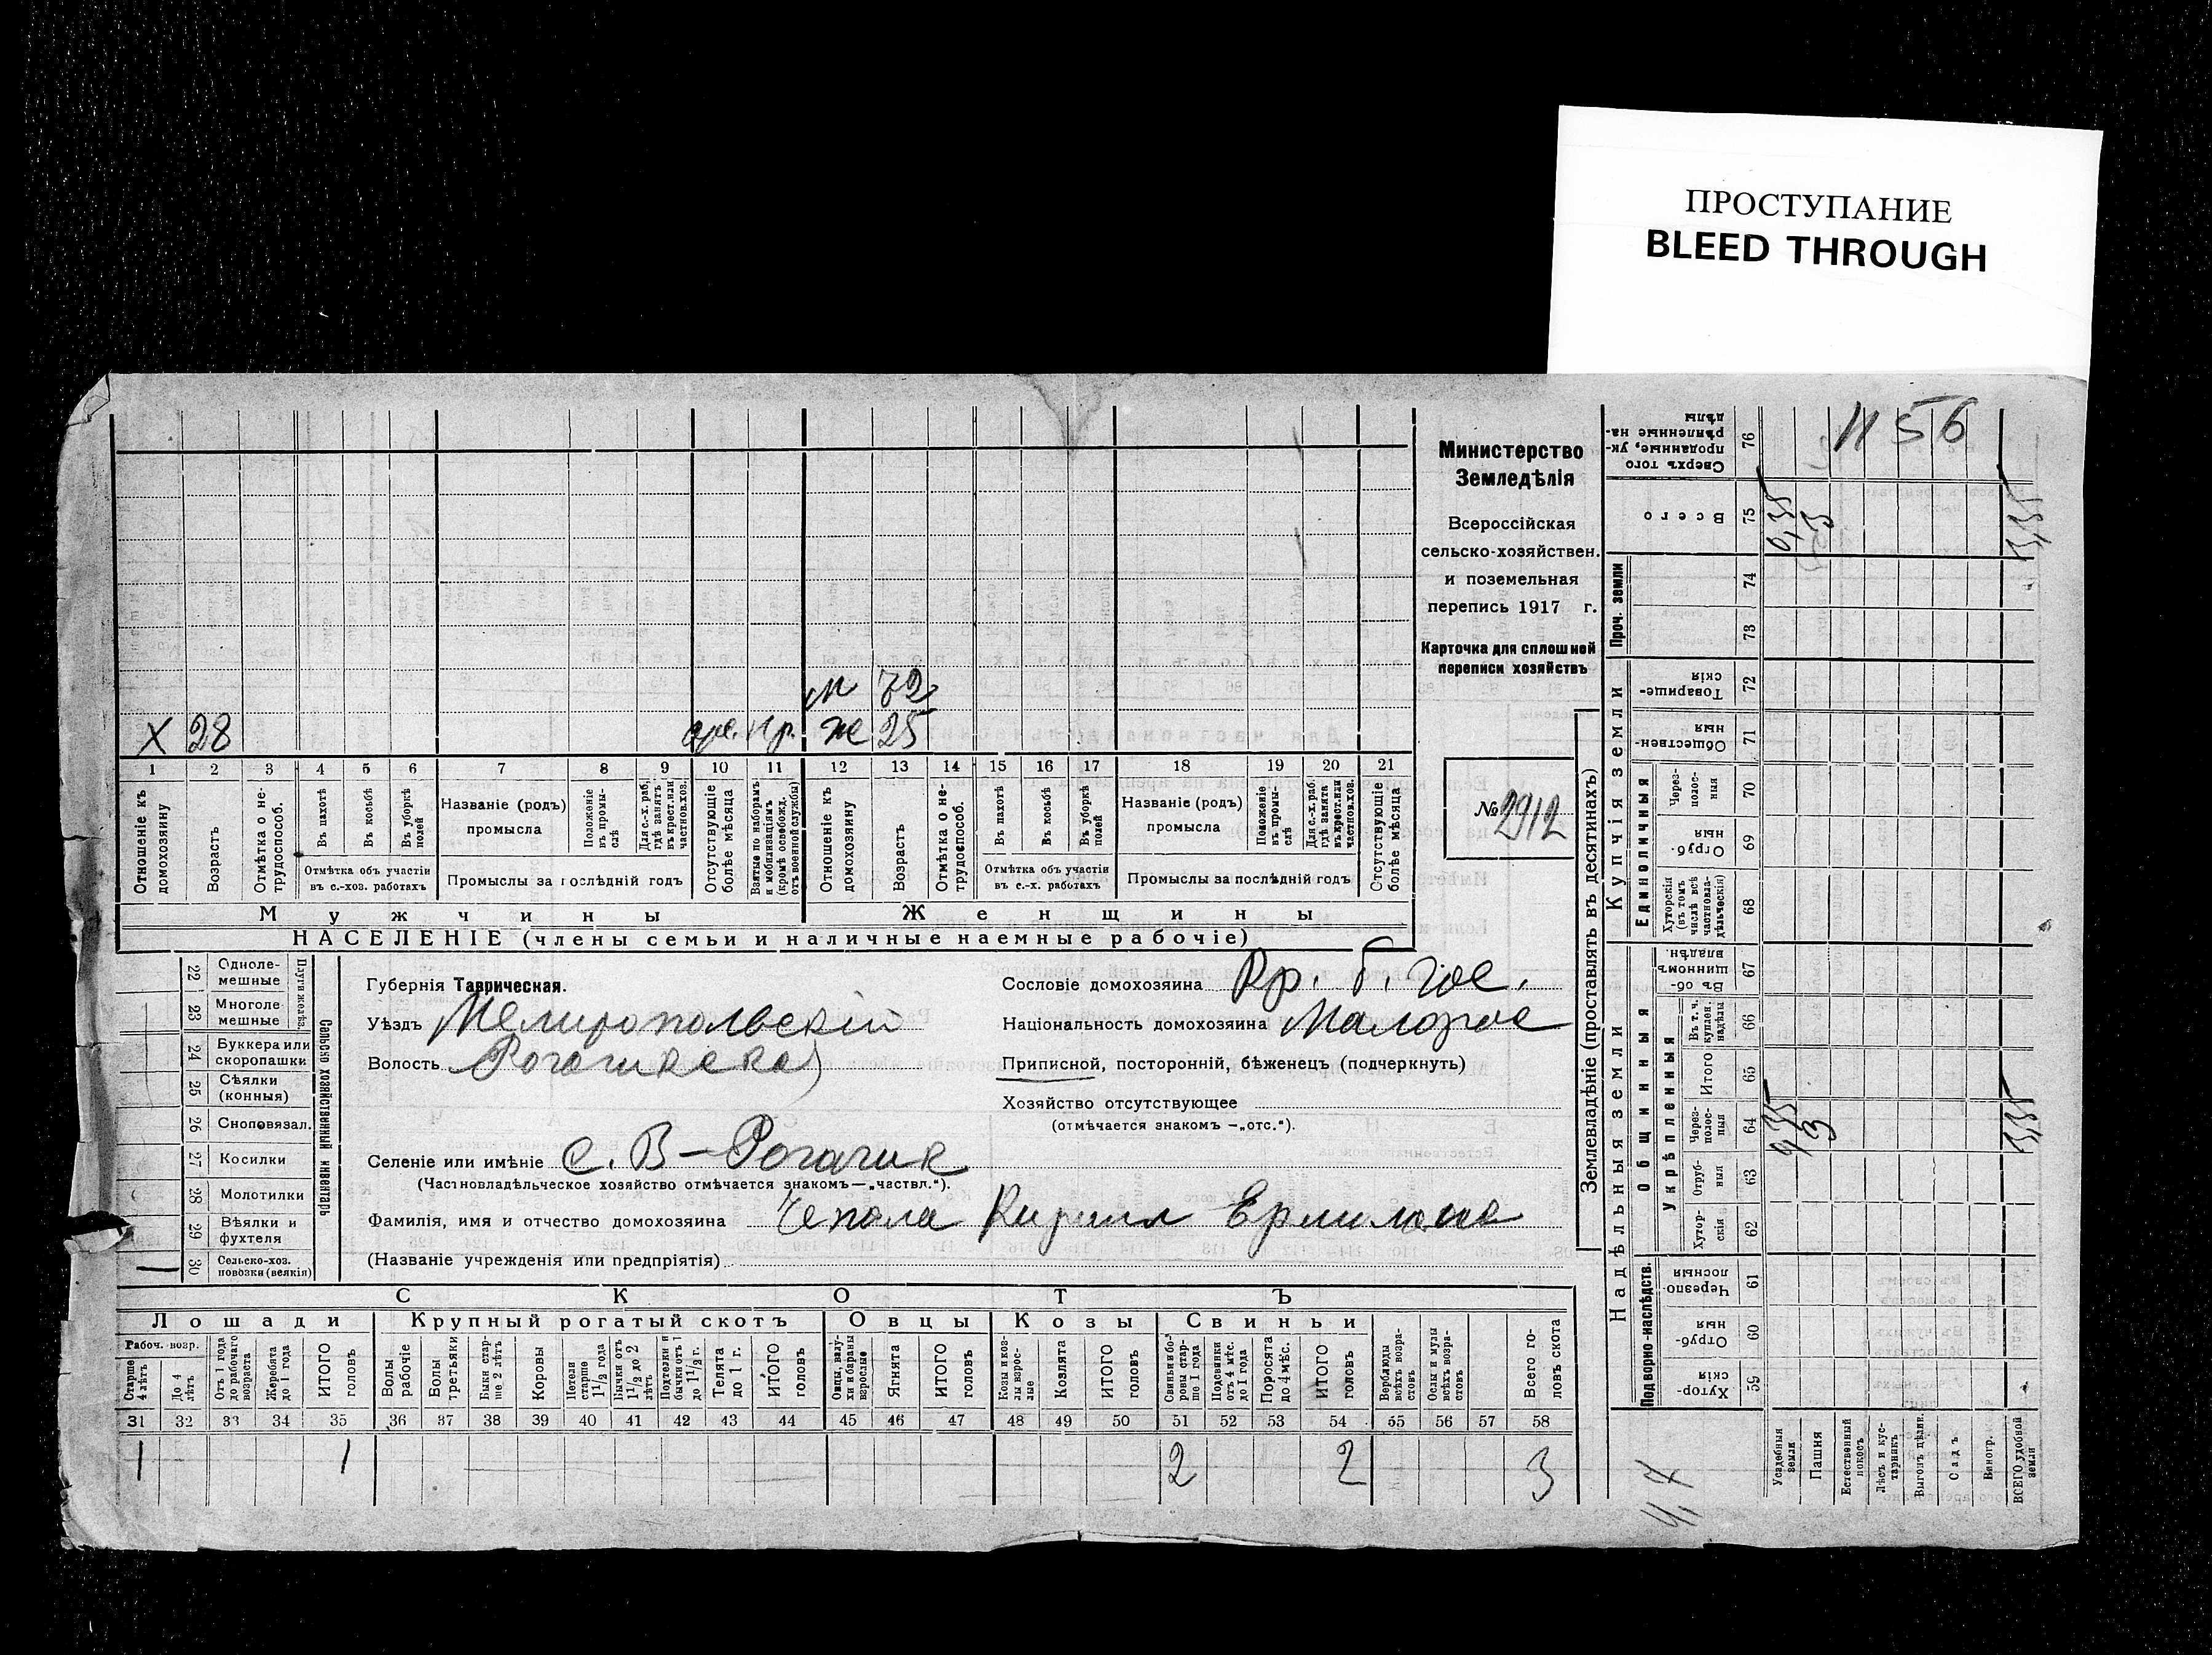 ПРОСТУПАНИЕ
BLEED THROUGH
11 56
Министерство
Земледѣлія
Всероссійская
сельско-хозяйствен.
и поземельная
перепись 1917 г.
Карточка для сплошной
переписи хозяйствъ
№ 2912
м 72
Х 28 пр. ж 25
1 2 3 4 5 6 7 8 9 10 11 12 13 14 15 16 17 18 19 20 21
Отношеніе къ домохозяину
Возрастъ
Отмѣтка о не-трудоспособ.
Въ пахотѣ
Въ косьбѣ
Въ уборкѣ полей
Отмѣтка объ участіи въ с.-хоз. работахъ
Названіе (родъ) промысла
Положеніе въ промы-слѣ
Для с.-х. раб. гдѣ занятъ въ крест. или частновл. хоз.
Промыслы за послѣдній годъ
Отсутствующіе болѣе мѣсяца
Взятые по наборамъ и мобилизаціямъ (кромѣ освобожд. отъ военной службы)
Отношеніе къ домохозяину
Возрастъ
Отмѣтка о не-трудоспособ.
Въ пахотѣ
Въ косьбѣ
Въ уборкѣ полей
Отмѣтка объ участіи въ с.-х. работахъ
Названіе (родъ) промысла
Положеніе въ промы-слѣ
Для с.-х. раб. гдѣ занята въ крест. или частнов. хоз.
Промыслы за послѣдній годъ
Отсутствующіе болѣе мѣсяца
Мужчины Женщины
НАСЕЛЕНІЕ (члены семьи и наличные наемные рабочіе)
Сельско хозяйственный инвентарь
Плуги желѣз.
22 Одноле-мешные
23 Многоле-мешные
24 Буккера или скоропашки
25 Сѣялки (конныя)
26 Сноповязал.
27 Косилки
28 Молотилки
29 Вѣялки и фухтеля
30 Сельско-хоз. повозки (всякія)
Губернія Таврическая.
Уѣздъ Мелитопольскій
Волость Рогачикская
Селеніе или имѣніе с. В-Рогачик
(Частновладѣльческое хозяйство отмѣчается знакомъ—„частвл.“).
Фамилія, имя и отчество домохозяина Чепала Кирилл
(Названіе учрежденія или предпріятія)
Сословіе домохозяина Кр.
Национальность домохозяина Малорос
Приписной, посторонній, бѣженец (подчеркнуть)
Хозяйство отсутствующее
(отмѣчается знакомъ —„отс.“).
СКОТЪ
Лошади Крупный рогатый скотъ Овцы Козы Свиньи
Рабоч. возр.
Старше 4 лѣтъ
До 4 лѣтъ
Отъ 1 года до рабочаго возраста
Жеребята до 1 года
ИТОГО головъ
Волы рабочіе
Волы третьяки
Быки стар-ше 2 лѣтъ
Коровы
Нетели старше 1 1/2 года
Бычки отъ 1 1/2 до 2 лѣтъ
Подтелки и бычки отъ 1 до 1 1/2 г.
Телята до 1 г.
ИТОГО головъ
Овцы, валу-хи и бараны взрослые
Ягнята
ИТОГО головъ
Козы и коз-лы взрос-лые
Козлята
ИТОГО головъ
Свиньи и бо-ровы стар-ше 1 года
Подсвинки отъ 4 мѣс. до 1 года
Поросята до 4 мѣс.
ИТОГО головъ
Верблюды всѣхъ возра-стовъ
Ослы и мулы всѣхъ возра-стовъ
Всего го-ловъ скота
31 32 33 34 35 36 37 38 39 40 41 42 43 44 45 46 47 48 49 50 51 52 53 54 55 56 57 58
1 1 2 2 3
Землевладѣніе (проставлять въ десятинахъ)
Надѣльныя земли Купчія земли Проч. земли
Подворно-наслѣдств.
Общинныя
Укрѣпленныя
Единоличныя
Хутор-скія 59
Отруб-ныя 60
Черезпо-лосныя 61
Хутор-скія 62
Отруб-ныя 63
Через-полос-ныя 64
Итого 65
Въ т. ч. куплен. надѣлы 66
Въ об-щинномъ владѣн. 67
Хуторскія (въ томъ числѣ всѣ частновла-дѣльческія) 68
Отруб-ныя 69
Через-полос-ныя 70
Обществен-ныя 71
Товарище-скія 72
73
74
Всего 75
Сверхъ того проданные, ук-рѣпленные на-дѣлы 76
Усадебныя земли 0,35
Пашня 3 3
Естественный покосъ
Лѣсъ и кус-тарникъ
Выгонъ цѣлин.
Садъ
Виногр.
ВСЕГО удобной земли 3,35 3,35